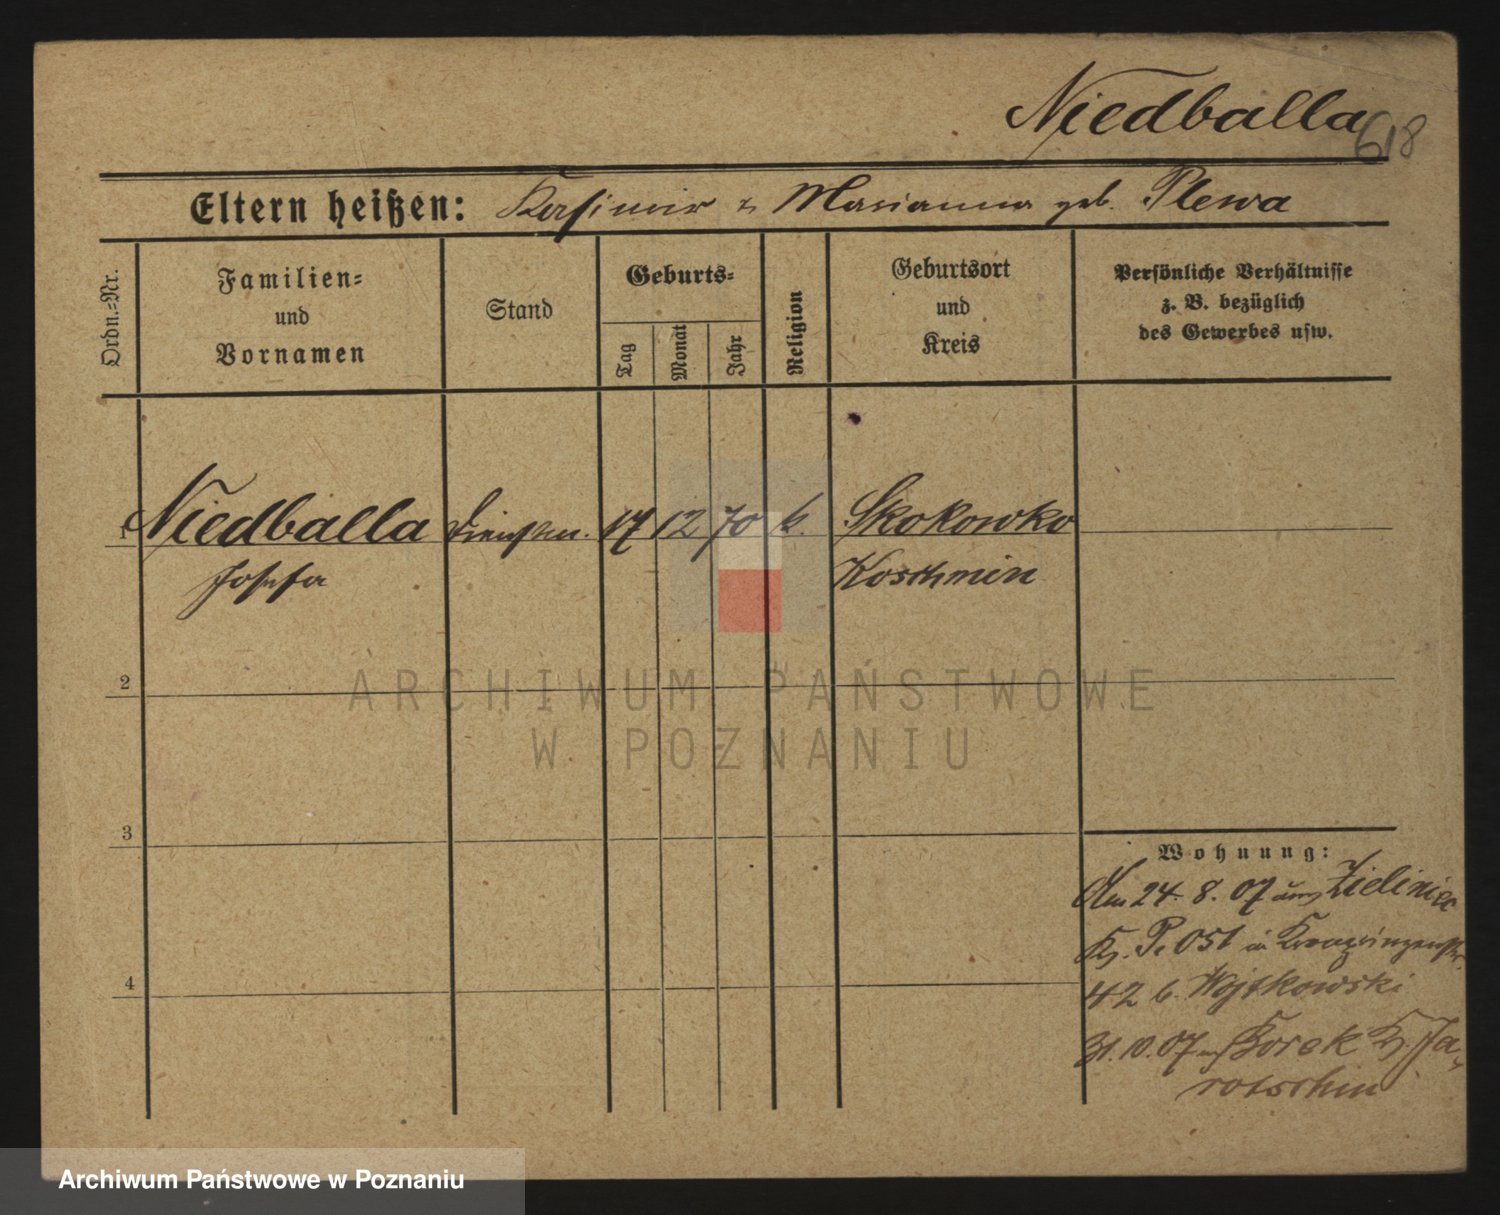 Niedballa
618
Eltern heißen: Kasimir u Marianna geb. Plewa
Ordn.-Nr.
Familien-
und
Vornamen
Stand
Geburts-
Tag
Monat
Jahr
Religion
Geburtsort
und
Kreis
Persönliche Verhältnisse
z. B. bezüglich
des Gewerbes usw.
1 Niedballa 17 12 70 k. Skokowko
Josefa Koschmin
2
3
4
Wohnung:
Am 24. 8. 07 aus Zieliniec
Kr. P. Ost in Kronprinzenstr.
42 b. Wojtkowski
31. 10. 07 Borek Kr. Ja-
rotschin
ARCHIWUM PAŃSTWOWE
W POZNANIU
Archiwum Państwowe w Poznaniu